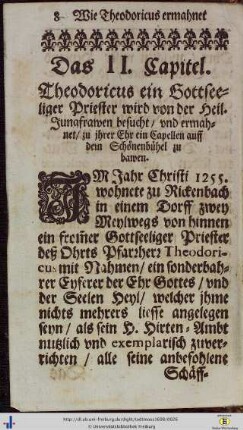 8 Wie Theodoricus ermahnet
Das II. Capitel.
Theodoricus ein Gottsee-
liger Priester wird von der Heil.
Junafrawen besucht / vnd ermah-
net / zu jhrer Ehr ein Capellen auff
dem Schönenbühel zu
bawen.
IM Jahr Christi 1255.
wohnete zu Rickenbach
in einem Dorff zwey
Meylwegs von hinnen
ein from̃er Gottseeliger Priester
deß Ohrts Pfarzherz Theodori-
cus mit Nahmen / ein sonderbah-
rer Eyferer der Ehr Gottes / vnd
der Seelen Heyl / welcher jhme
nichts mehrers liesse angelegen
seyn / als sein H. Hirten-Ambt
nutzlich vnd exemplarisch zuver-
richten / alle seine anbefohlene
Schäff-
© Universitätsbibliothek Freiburg